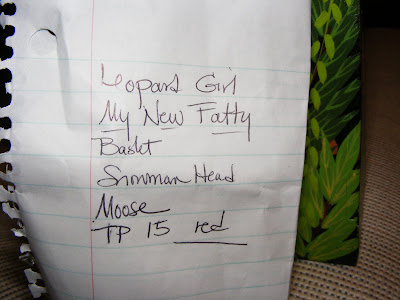 Leopard Girl
My New Fatty
Basket
Snowman Head
Moose
TP 15 red